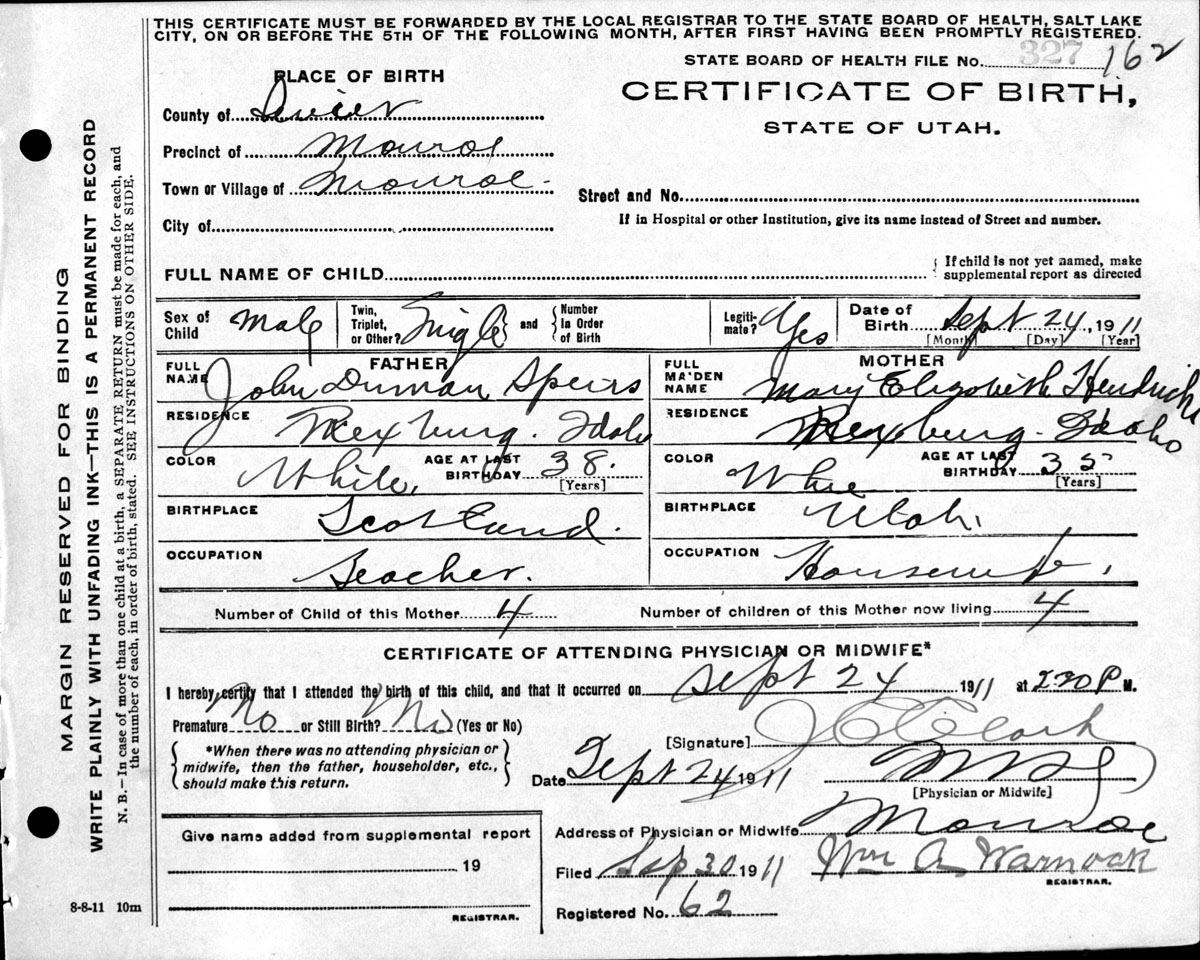 THIS CERTIFICATE MUST BE FORWARDED BY THE LOCAL REGISTRAR TO THE STATE BOARD OF HEALTH, SALT LAKE
CITY, ON OR BEFORE THE 5TH OF THE FOLLOWING MONTH, AFTER FIRST HAVING BEEN PROMPTLY REGISTERED.
STATE BOARD OF HEALTH FILE No. 327 162
PLACE OF BIRTH
CERTIFICATE OF BIRTH,
STATE OF UTAH.
County of Sevier
Precinct of Monroe
Town or Village of Monroe
Street and No.
If in Hospital or other Institution, give its name instead of Street and number.
City of
FULL NAME OF CHILD
{ If child is not yet named, make
supplemental report as directed
Sex of Child Male
Twin, Triplet, or Other? Single } and { Number in Order of Birth
Legiti- mate? Yes
Date of Birth Sept 24, 1911
[Month] [Day] [Year]
FATHER
FULL NAME John Duncan Speirs
RESIDENCE Rexburg. Idaho
COLOR White,
AGE AT LAST BIRTHDAY 38.
[Years]
BIRTHPLACE Scotland.
OCCUPATION Teacher.
MOTHER
FULL MAIDEN NAME Mary Elizabeth Hendricks
RESIDENCE Rexburg. Idaho
COLOR White
AGE AT LAST BIRTHDAY 35
[Years]
BIRTHPLACE Utah.
OCCUPATION Housewife,
Number of Child of this Mother 4
Number of children of this Mother now living 4
CERTIFICATE OF ATTENDING PHYSICIAN OR MIDWIFE*
I hereby certify that I attended the birth of this child, and that it occurred on Sept 24 1911 at 2 30 P M.
Premature No or Still Birth? No (Yes or No)
{ *When there was no attending physician or
midwife, then the father, householder, etc.,
should make this return. }
[Signature] J C Clark
Date Sept 24 1911
[Physician or Midwife]
Address of Physician or Midwife Monroe
Filed Sep 30 1911 Wm A Warnock
REGISTRAR.
Registered No. 62
Give name added from supplemental report
19
REGISTRAR.
8-8-11 10m
MARGIN RESERVED FOR BINDING
WRITE PLAINLY WITH UNFADING INK—THIS IS A PERMANENT RECORD
N. B.—In case of more than one child at a birth, a SEPARATE RETURN must be made for each, and
the number of each, in order of birth, stated. SEE INSTRUCTIONS ON OTHER SIDE.